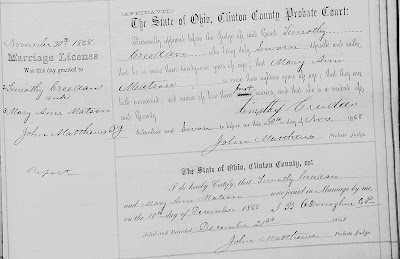 November 30th 1868
Marriage License
Was this day granted to
Timothy Creedan
and
Mary Ann Matson
John Matthews P J
Report
(AFFIDAVIT)
The State of Ohio, Clinton County Probate Court:
Personally appeared before the Judge of said Court Timothy
Creedan who being duly Sworn deposes and saith,
that he is more than twenty-one years of age; that Mary Ann
Matson is more than eighteen years of age; that they are
both unmarried, and not of kin than first cousins, and that she is a resident of
said County
Timothy Creedan
Subscribed and Sworn to before me this 30th day of Nov 1868
John Matthews Probate Judge.
The State of Ohio, Clinton County, ss:
I do hereby Certify, that Timothy Creedan
and Mary Ann Matson were joined in Marriage by me,
on the 10th day of December 1868 J B O'Donoghue C.P.
Filed and Recorded December 21st 1868
John Matthews Probate Judge.